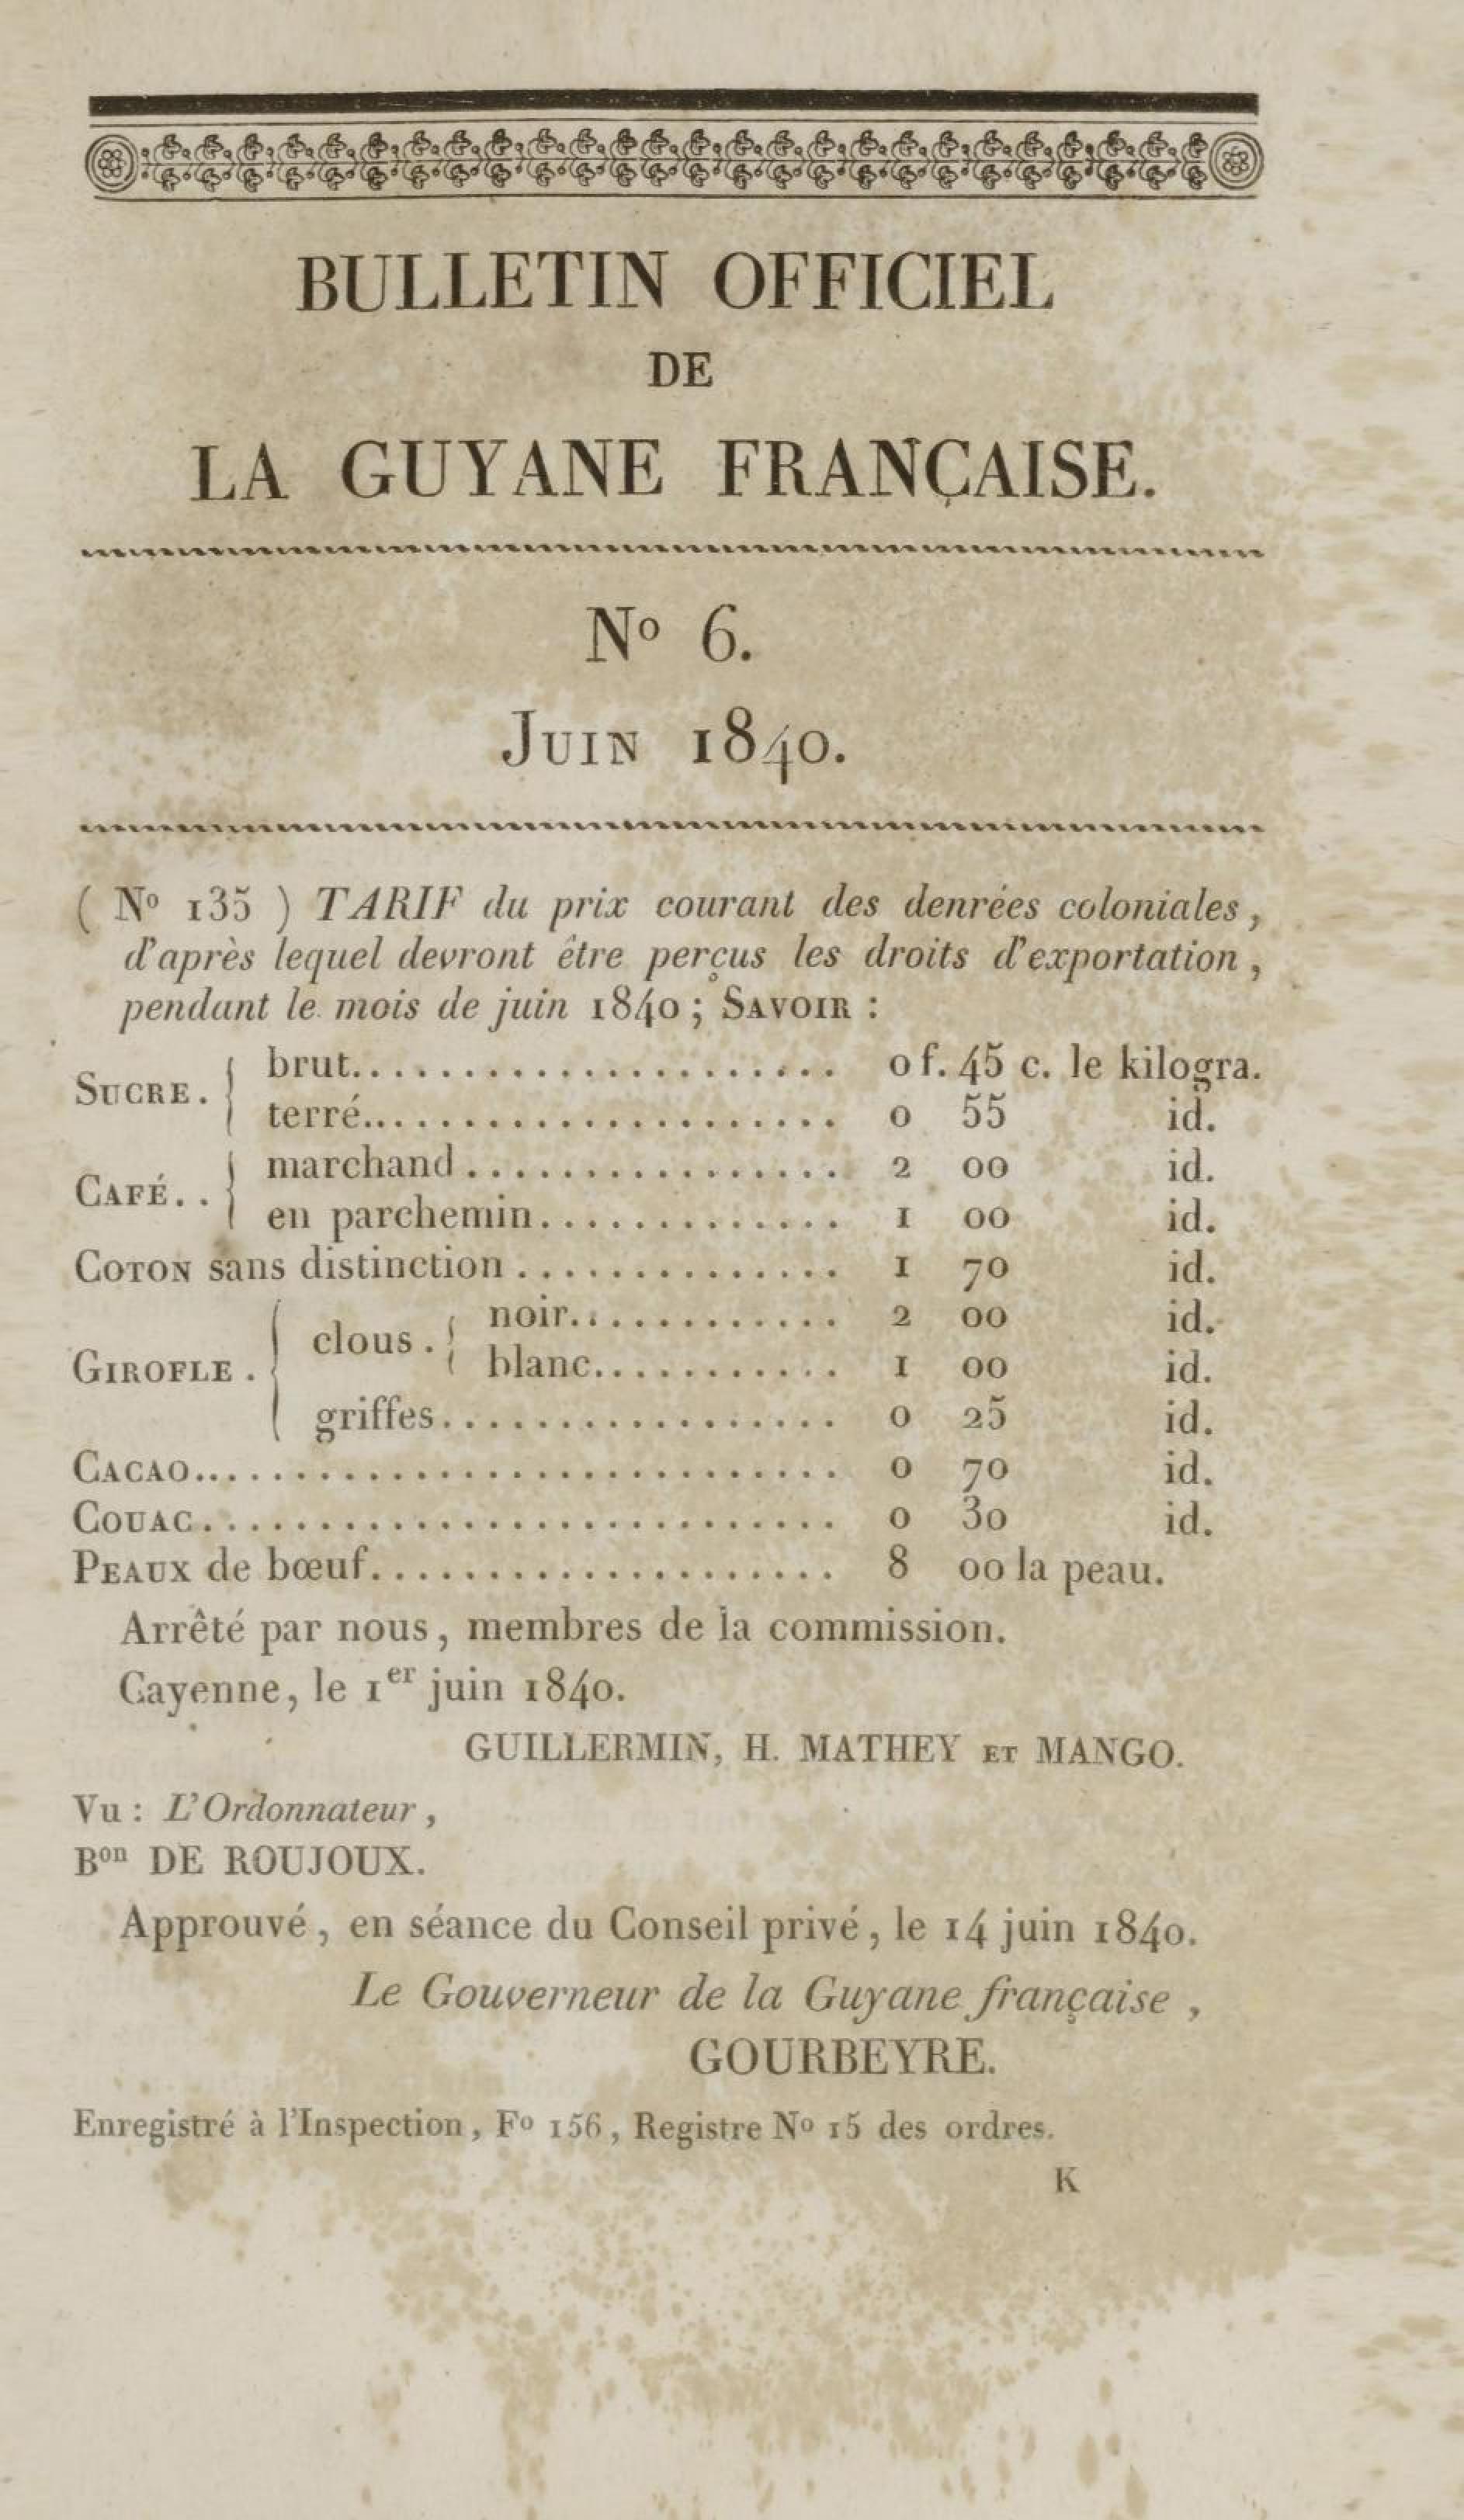 BULLETIN OFFICIEL
DE
LA GUYANE FRANÇAISE.
Nº 6.
JUIN 1840.
( Nº 135 ) TARIF du prix courant des denrées coloniales,
d'après lequel devront être perçus les droits d'exportation,
pendant le mois de juin 1840; SAVOIR :
SUCRE. { brut...................... 0 f. 45 c. le kilogra.
terré...................... 0 55 id.
CAFÉ.. { marchand................ 2 00 id.
en parchemin............. 1 00 id.
COTON sans distinction.............. 1 70 id.
GIROFLE. { clous. { noir............ 2 00 id.
blanc........... 1 00 id.
griffes................. 0 25 id.
CACAO............................. 0 70 id.
COUAC............................ 0 30 id.
PEAUX de bœuf.................... 8 00 la peau.
Arrêté par nous, membres de la commission.
Cayenne, le 1er juin 1840.
GUILLERMIN, H. MATHEY ET MANGO.
Vu : L'Ordonnateur,
Bon DE ROUJOUX.
Approuvé, en séance du Conseil privé, le 14 juin 1840.
Le Gouverneur de la Guyane française,
GOURBEYRE.
Enregistré à l'Inspection, Fº 156, Registre Nº 15 des ordres.
K